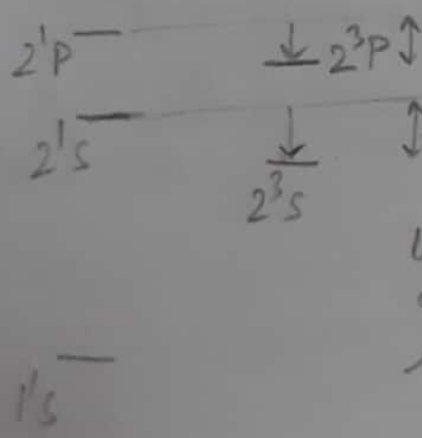 2¹P 2³P
2¹S
2³S
1¹S